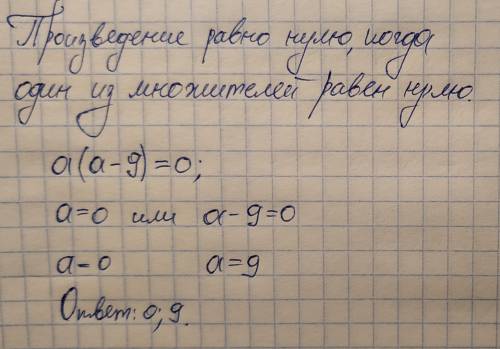 Произведение равно нулю, когда
один из множителей равен нулю.
a(a-9)=0;
a=0 или a-9=0
a=0 a=9
Ответ: 0; 9.